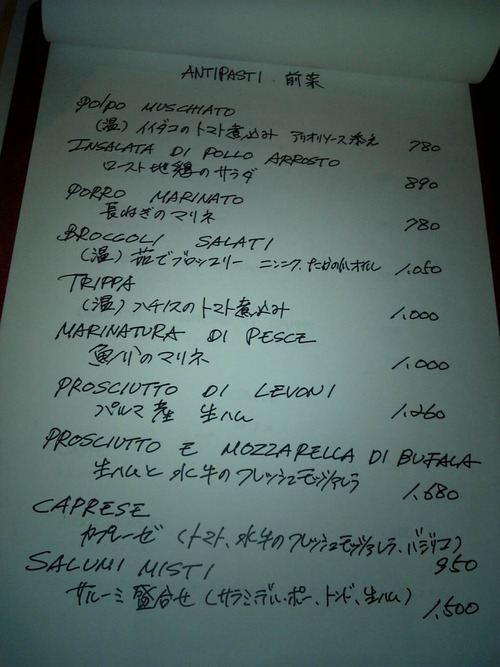 ANTIPASTI. 前菜
POLPO MUSCHIATO
(温) イイダコのトマト煮込み アリオリソース添え 780
INSALATA DI POLLO ARROSTO
ロースト地鶏のサラダ 890
PORRO MARINATO
長ねぎのマリネ 780
BROCCOLI SALATI
(温) 茹でブロッコリー ニンニク、たかの爪オイル 1,050
TRIPPA
(温) ハチノスのトマト煮込み 1,000
MARINATURA DI PESCE
魚介のマリネ 1,000
PROSCIUTTO DI LEVONI
パルマ産 生ハム 1,260
PROSCIUTTO E MOZZARELLA DI BUFALA
生ハムと水牛のフレッシュモッツァレラ 1,680
CAPRESE
カプレーゼ (トマト、水牛のフレッシュモッツァレラ、バジリコ) 950
SALUMI MISTI
サルーミ盛合せ (サラミ、デル・ポー、トンド、生ハム) 1,500